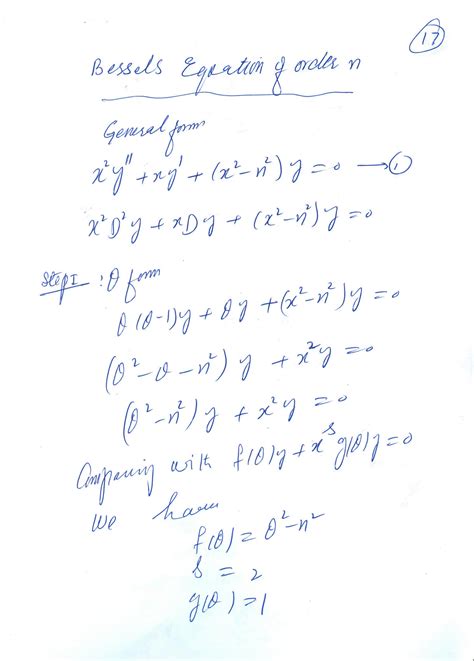 17
Bessels Equation of order n
General form
x²y'' + xy' + (x²-n²)y = 0 → ①
x²D²y + xDy + (x²-n²)y = 0
Step I : θ form
θ(θ-1)y + θy + (x²-n²)y = 0
(θ²-θ-n²)y + x²y = 0
(θ²-n²)y + x²y = 0
Comparing with f(θ)y + x^s g(θ)y = 0
We have
f(θ) = θ²-n²
s = 2
g(θ) = 1